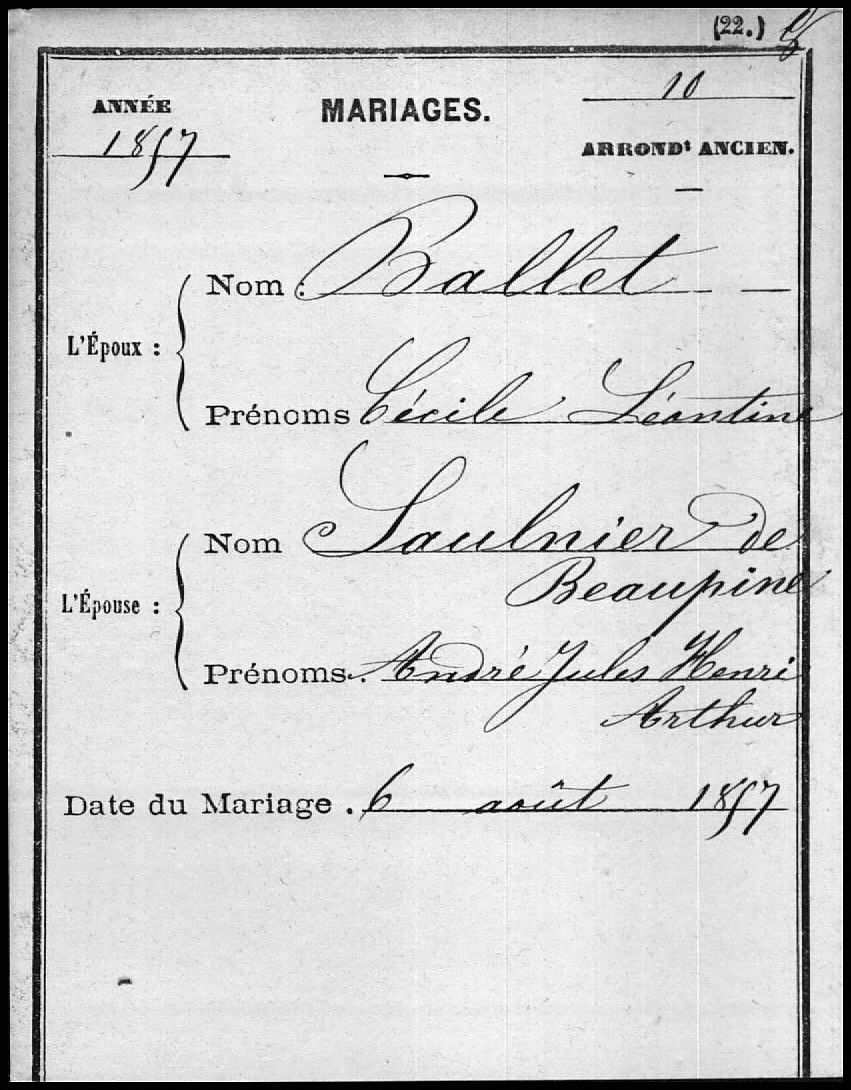 (22.)
ANNÉE
1857
MARIAGES.
10
ARRONDt ANCIEN.
Nom : Ballet
L'Époux :
Prénoms Cécile Léontine
Nom Saulnier de
Beaupine
L'Épouse :
Prénoms. André Jules Henri
Arthur
Date du Mariage . 6 août 1857